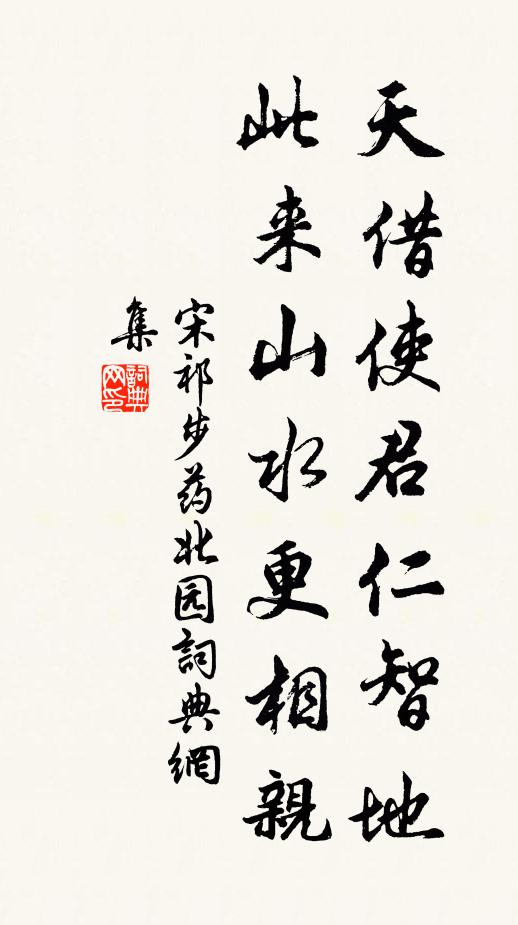 天借使君仁智地
此来山水更相親
宋祁步药北园詞典網
集
詞典網印